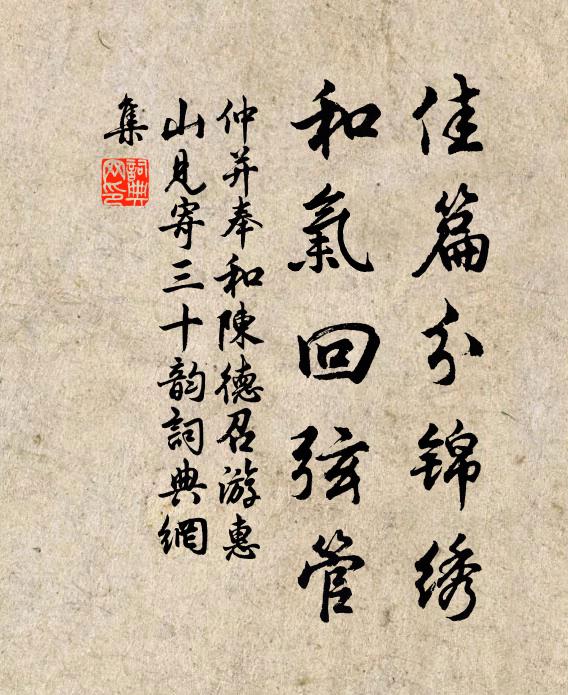 佳篇分锦绣
和氣回弦管
仲并奉和陳德召游惠
山見寄三十韵詞典網
集
詞典
网印